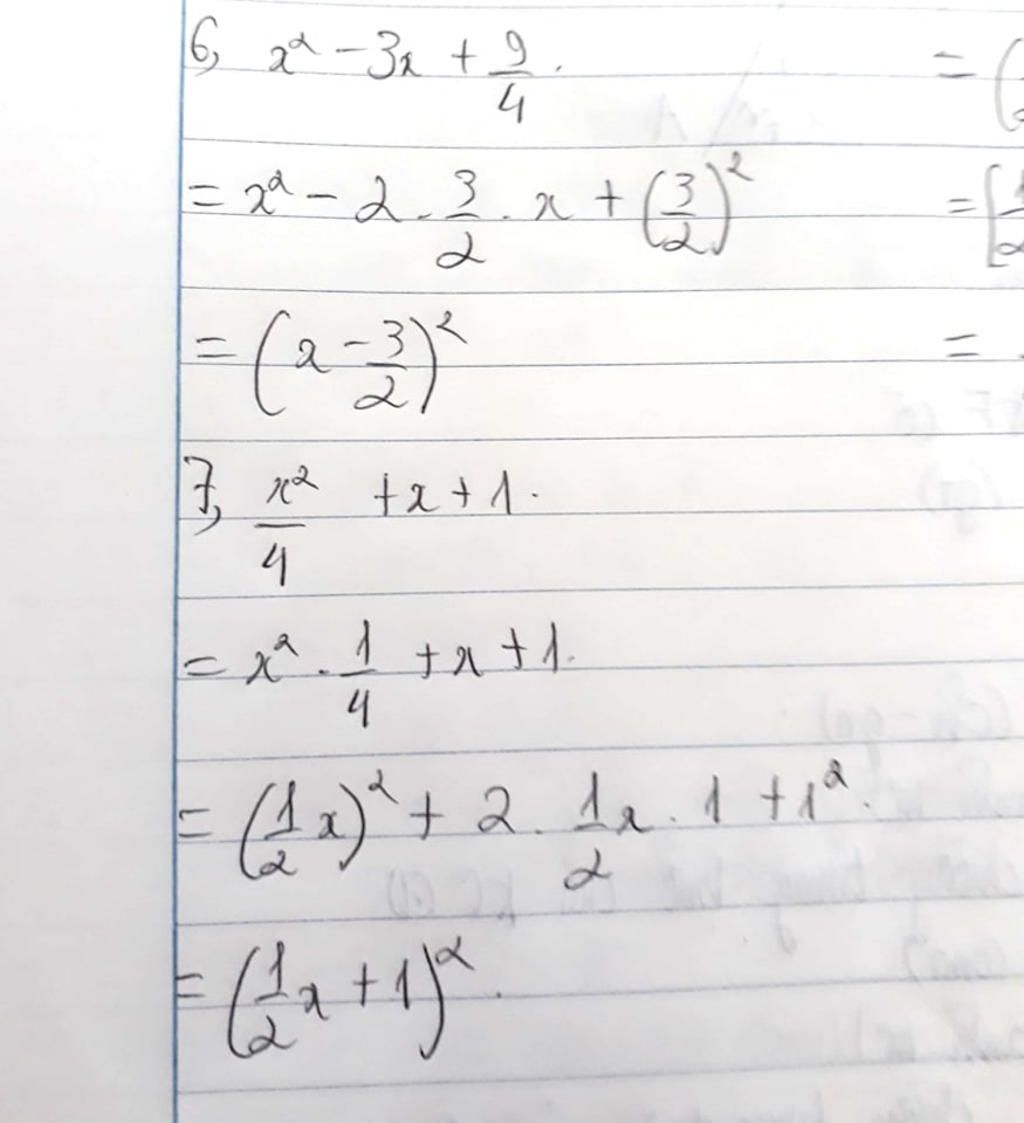 6, x² - 3x + 9/4.
= x² - 2 . 3/2 . x + (3/2)²
= (x - 3/2)²
7, x²/4 + x + 1.
= x² . 1/4 + x + 1.
= (1/2 x)² + 2 . 1/2 x . 1 + 1².
= (1/2 x + 1)².